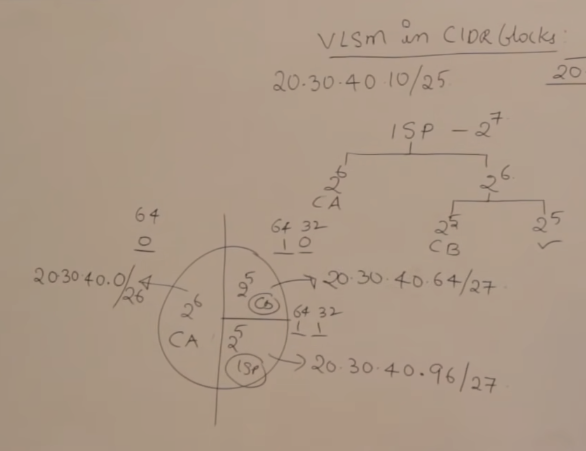 VLSM in CIDR blocks:
20.30.40.10/25
20
ISP - 2^7
2^6 2^6
CA
2^5 2^5
CB ✓
64
0
64 32
1 0
20.30.40.0/26
2^5
CB
20.30.40.64/27
2^6
CA
64 32
1 1
2^5
ISP
20.30.40.96/27